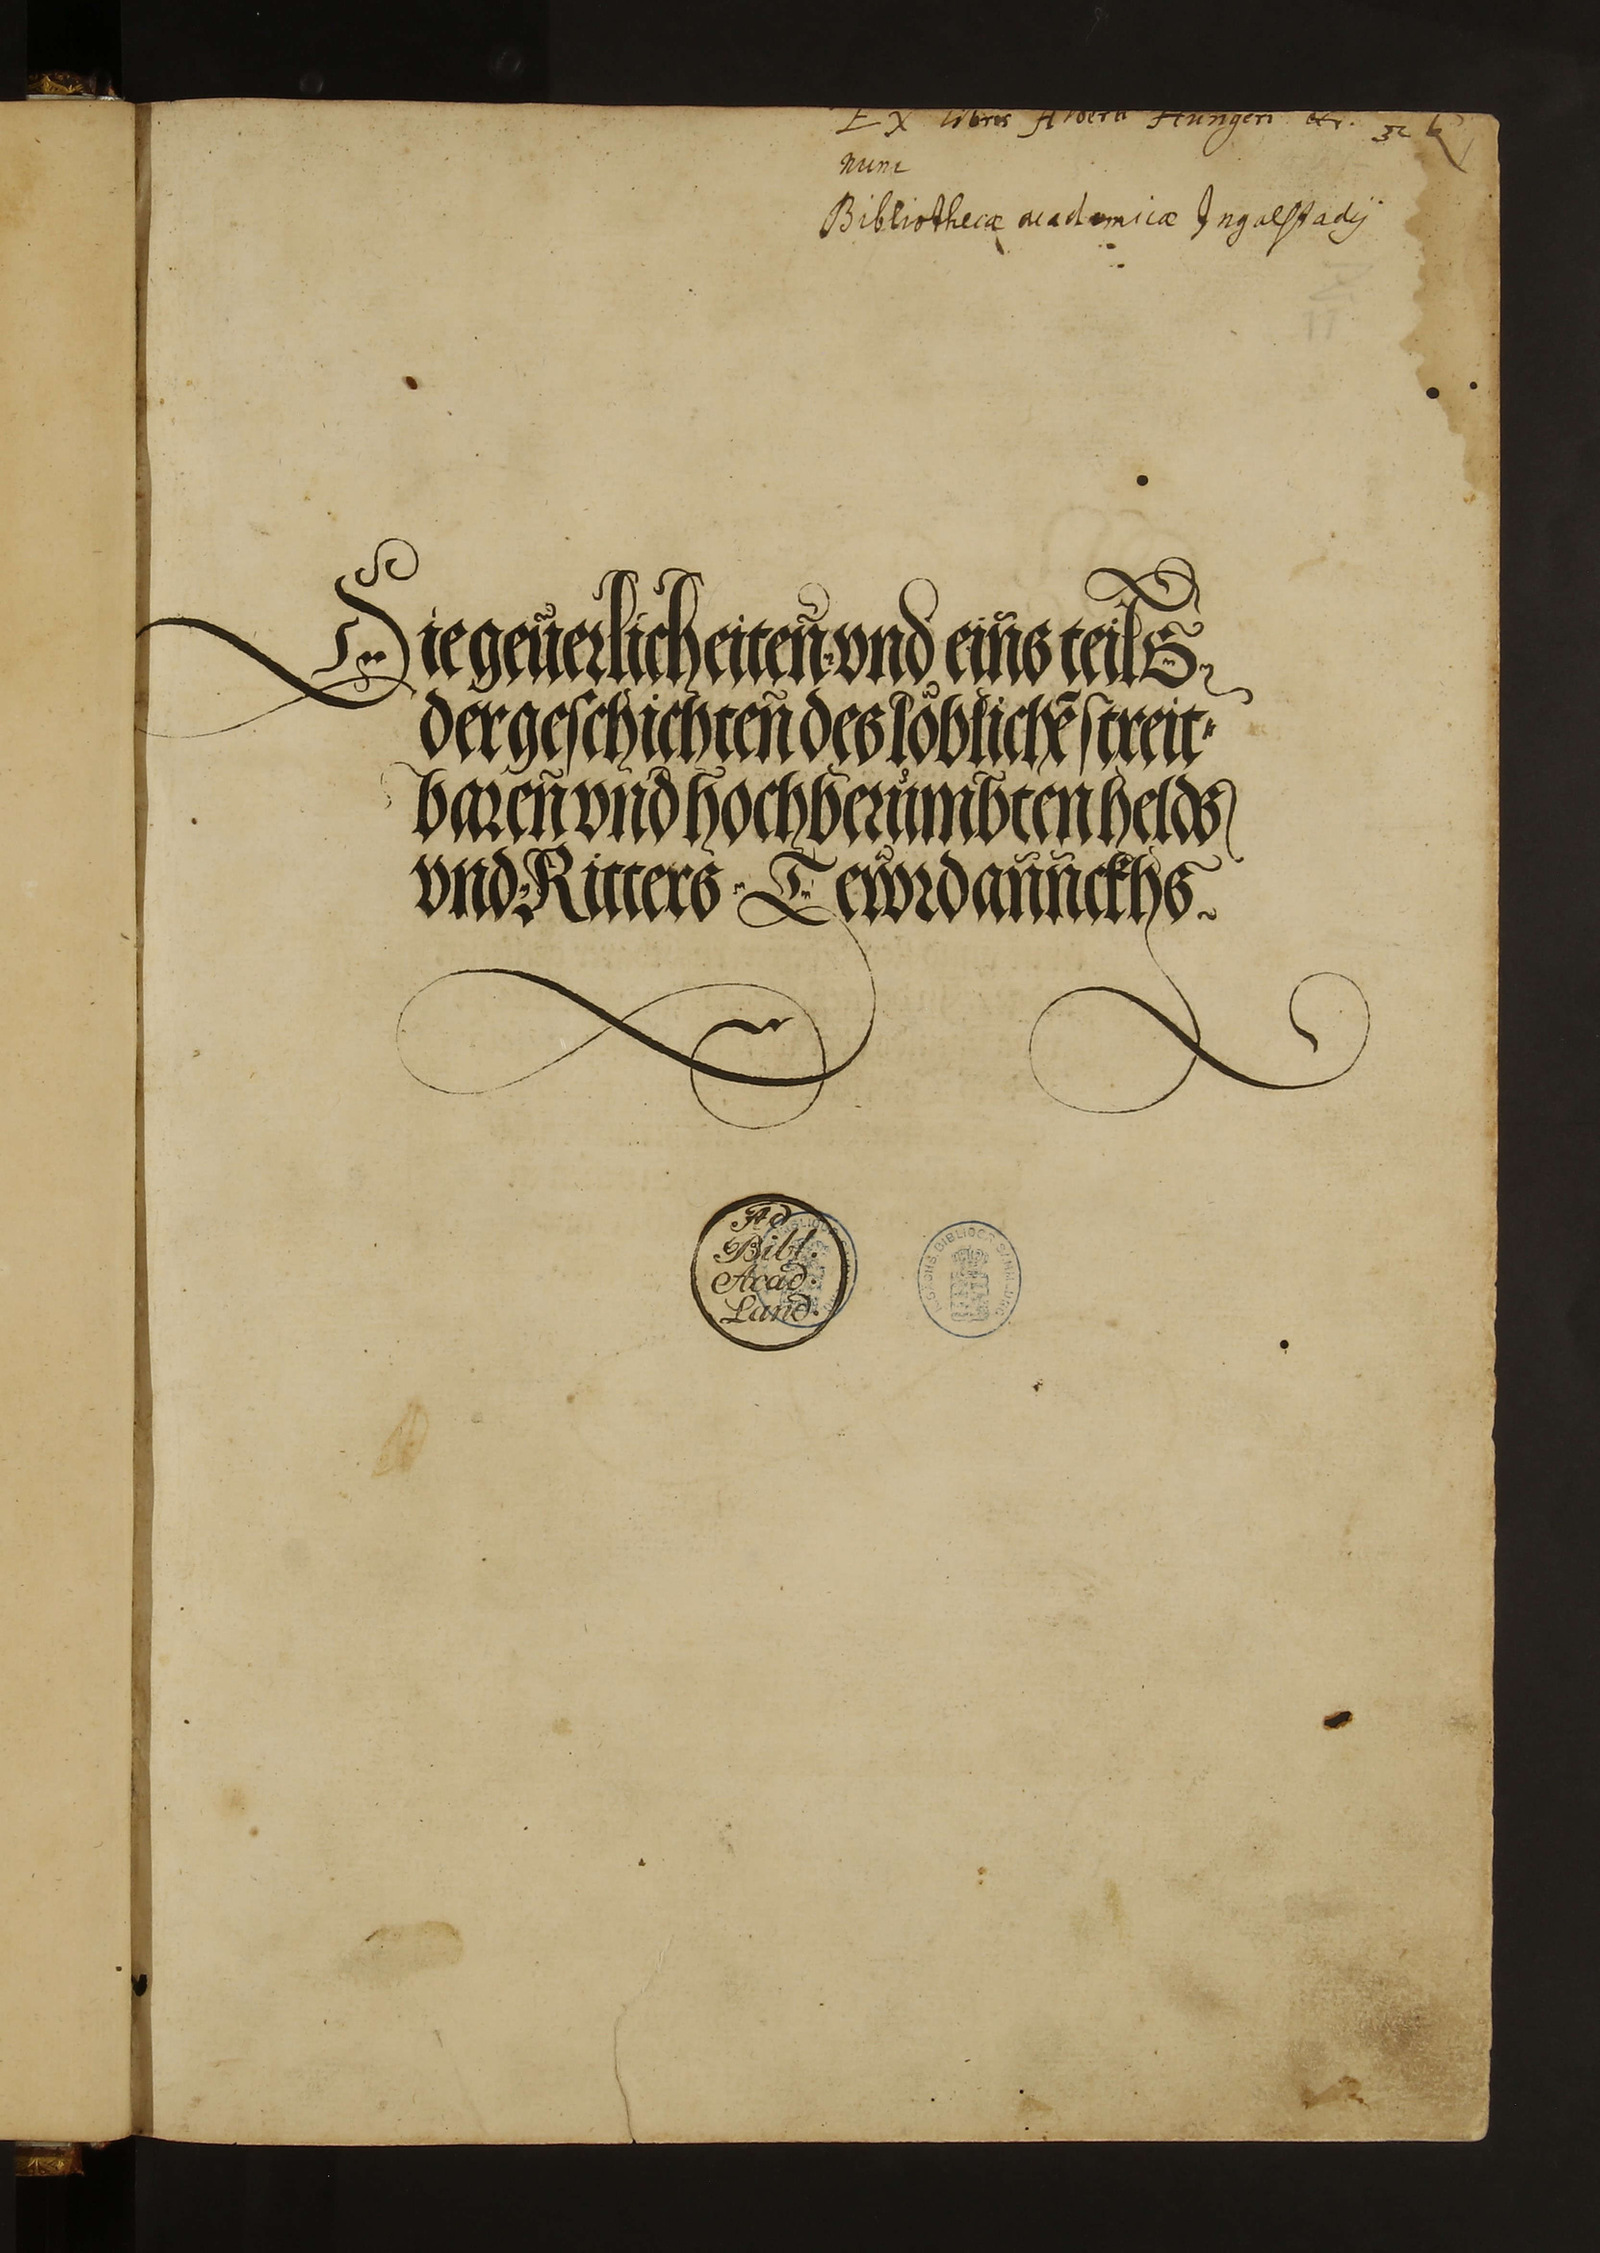 Ex libris Alberti Hungeri &c.
nunc
Bibliothecæ academicæ Ingolstadij
Die geuerlicheiten vnd eins teils
der geschichten des loblichē streit-
baren vnd hochberumbten helds
vnd Ritters Tewrdannckhs
Ad
Bibl.
Acad.
Land.